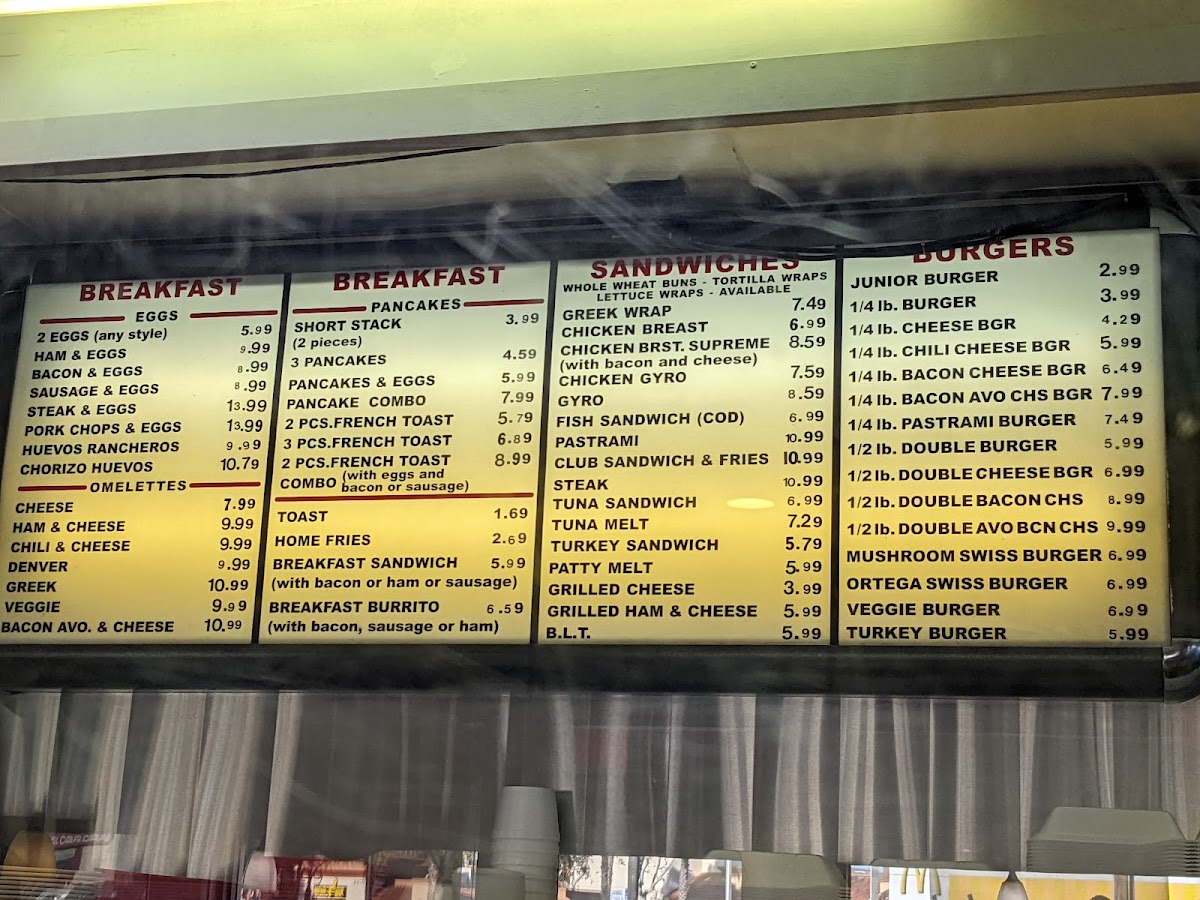 BREAKFAST
EGGS
2 EGGS (any style) 5.99
HAM & EGGS 9.99
BACON & EGGS 8.99
SAUSAGE & EGGS 8.99
STEAK & EGGS 13.99
PORK CHOPS & EGGS 13.99
HUEVOS RANCHEROS 9.99
CHORIZO HUEVOS 10.79
OMELETTES
CHEESE 7.99
HAM & CHEESE 9.99
CHILI & CHEESE 9.99
DENVER 9.99
GREEK 10.99
VEGGIE 9.99
BACON AVO. & CHEESE 10.99
BREAKFAST
PANCAKES
SHORT STACK 3.99
(2 pieces)
3 PANCAKES 4.59
PANCAKES & EGGS 5.99
PANCAKE COMBO 7.99
2 PCS.FRENCH TOAST 5.79
3 PCS.FRENCH TOAST 6.89
2 PCS.FRENCH TOAST 8.99
COMBO (with eggs and
bacon or sausage)
TOAST 1.69
HOME FRIES 2.69
BREAKFAST SANDWICH 5.99
(with bacon or ham or sausage)
BREAKFAST BURRITO 6.59
(with bacon, sausage or ham)
SANDWICHES
WHOLE WHEAT BUNS - TORTILLA WRAPS
LETTUCE WRAPS - AVAILABLE
GREEK WRAP 7.49
CHICKEN BREAST 6.99
CHICKEN BRST. SUPREME 8.59
(with bacon and cheese)
CHICKEN GYRO 7.59
GYRO 8.59
FISH SANDWICH (COD) 6.99
PASTRAMI 10.99
CLUB SANDWICH & FRIES 10.99
STEAK 10.99
TUNA SANDWICH 6.99
TUNA MELT 7.29
TURKEY SANDWICH 5.79
PATTY MELT 5.99
GRILLED CHEESE 3.99
GRILLED HAM & CHEESE 5.99
B.L.T. 5.99
BURGERS
JUNIOR BURGER 2.99
1/4 lb. BURGER 3.99
1/4 lb. CHEESE BGR 4.29
1/4 lb. CHILI CHEESE BGR 5.99
1/4 lb. BACON CHEESE BGR 6.49
1/4 lb. BACON AVO CHS BGR 7.99
1/4 lb. PASTRAMI BURGER 7.49
1/2 lb. DOUBLE BURGER 5.99
1/2 lb. DOUBLE CHEESE BGR 6.99
1/2 lb. DOUBLE BACON CHS 8.99
1/2 lb. DOUBLE AVO BCN CHS 9.99
MUSHROOM SWISS BURGER 6.99
ORTEGA SWISS BURGER 6.99
VEGGIE BURGER 6.99
TURKEY BURGER 5.99